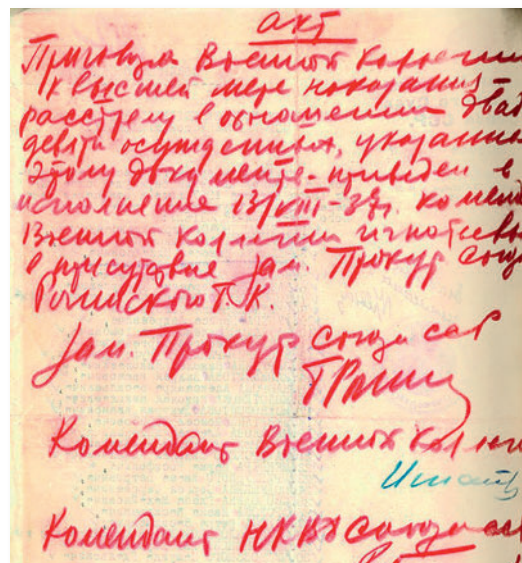 акт
Приговора Военной Коллегии
к высшей мере наказания –
расстрелу в отношении два
девяти осужденных, указанны
этому документе – приведен в
исполнение 13/VIII-37г. комен
Военной Коллегии Игнатьевы
в присутствие зам. Прокур Союз
Рогинского Г.К.
Зам. Прокур Союза ССР
ГРогин
Комендант Военной Коллеги
Игнать
Комендант НКВД Союза сс